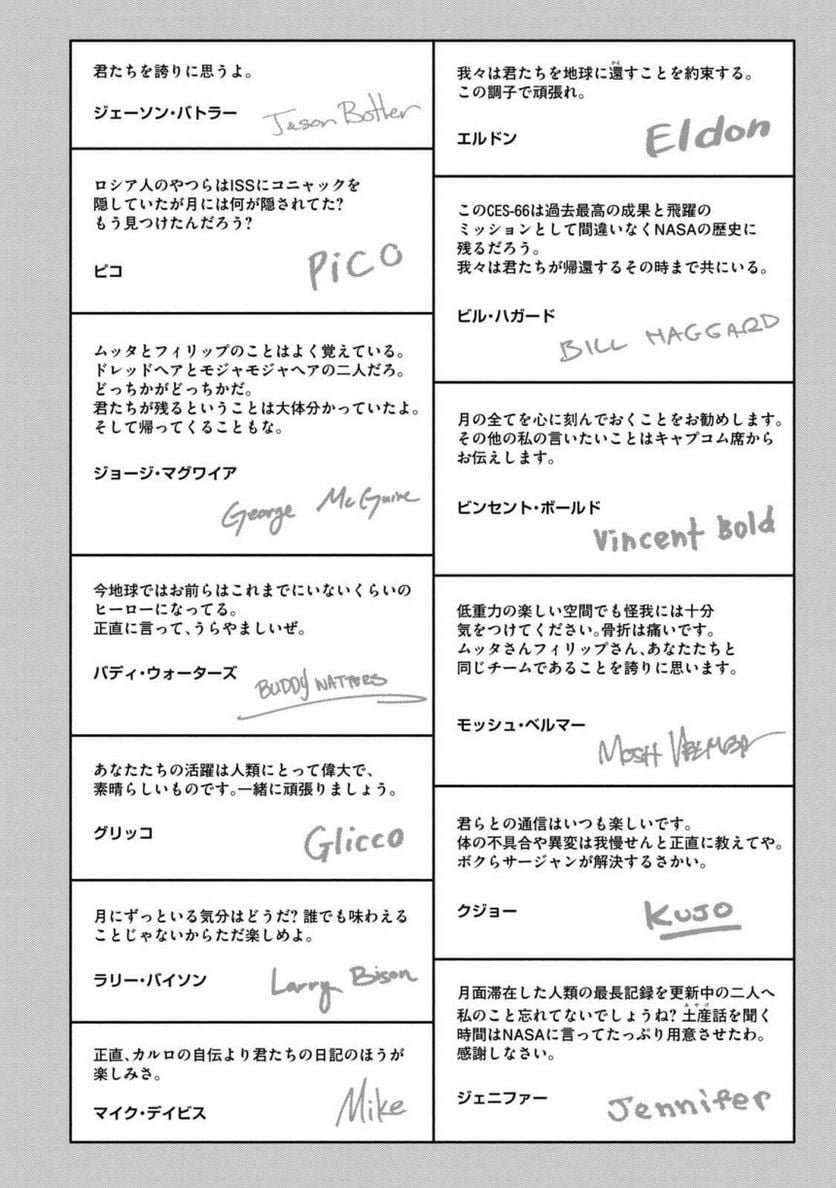 我々は君たちを地球に還すことを約束する。
この調子で頑張れ。
エルドン
Eldon
このCES-66は過去最高の成果と飛躍の
ミッションとして間違いなくNASAの歴史に
残るだろう。
我々は君たちが帰還するその時まで共にいる。
ビル・ハガード
BILL HAGGARD
月の全てを心に刻んでおくことをお勧めします。
その他の私の言いたいことはキャプコム席から
お伝えします。
ビンセント・ボールド
Vincent Bold
低重力の楽しい空間でも怪我には十分
気をつけてください。骨折は痛いです。
ムッタさんフィリップさん、あなたたちと
同じチームであることを誇りに思います。
モッシュ・ベルマー
MOSH VELMER
君らとの通信はいつも楽しいです。
体の不具合や異変は我慢せんと正直に教えてや。
ボクらサージャンが解決するさかい。
クジョー
KUJO
月面滞在した人類の最長記録を更新中の二人へ
私のこと忘れてないでしょうね? 土産話を聞く
時間はNASAに言ってたっぷり用意させたわ。
感謝しなさい。
ジェニファー
Jennifer
君たちを誇りに思うよ。
ジェーソン・バトラー
Jason Botler
ロシア人のやつらはISSにコニャックを
隠していたが月には何が隠されてた?
もう見つけたんだろう?
ピコ
PiCO
ムッタとフィリップのことはよく覚えている。
ドレッドヘアとモジャモジャヘアの二人だろ。
どっちかがどっちかだ。
君たちが残るということは大体分かっていたよ。
そして帰ってくることもな。
ジョージ・マグワイア
George McGuire
今地球ではお前らはこれまでにいないくらいの
ヒーローになってる。
正直に言って、うらやましいぜ。
バディ・ウォーターズ
BUDDY WATTERS
あなたたちの活躍は人類にとって偉大で、
素晴らしいものです。一緒に頑張りましょう。
グリッコ
Glicco
月にずっといる気分はどうだ? 誰でも味わえる
ことじゃないからただ楽しめよ。
ラリー・バイソン
Larry Bison
正直、カルロの自伝より君たちの日記のほうが
楽しみさ。
マイク・デイビス
Mike